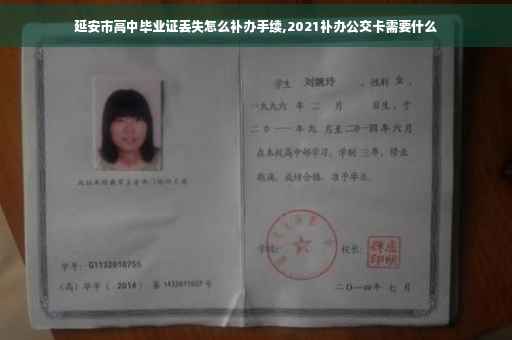 延安市高中毕业证丢失怎么补办手续,2021补办公交卡需要什么
学生 刘婉玲 ,性别 女 ,
一九九六 年 二 月 日生,于
二〇一一 年 九 月至 二〇一四 年 六 月
在本校高中部学习,学制 三 年,修业
期满,成绩合格,准予毕业。
学号: G1132010755
学校: 校长:
(高)毕字( 2014 )第 1432011007 号
二〇一四年 七 月